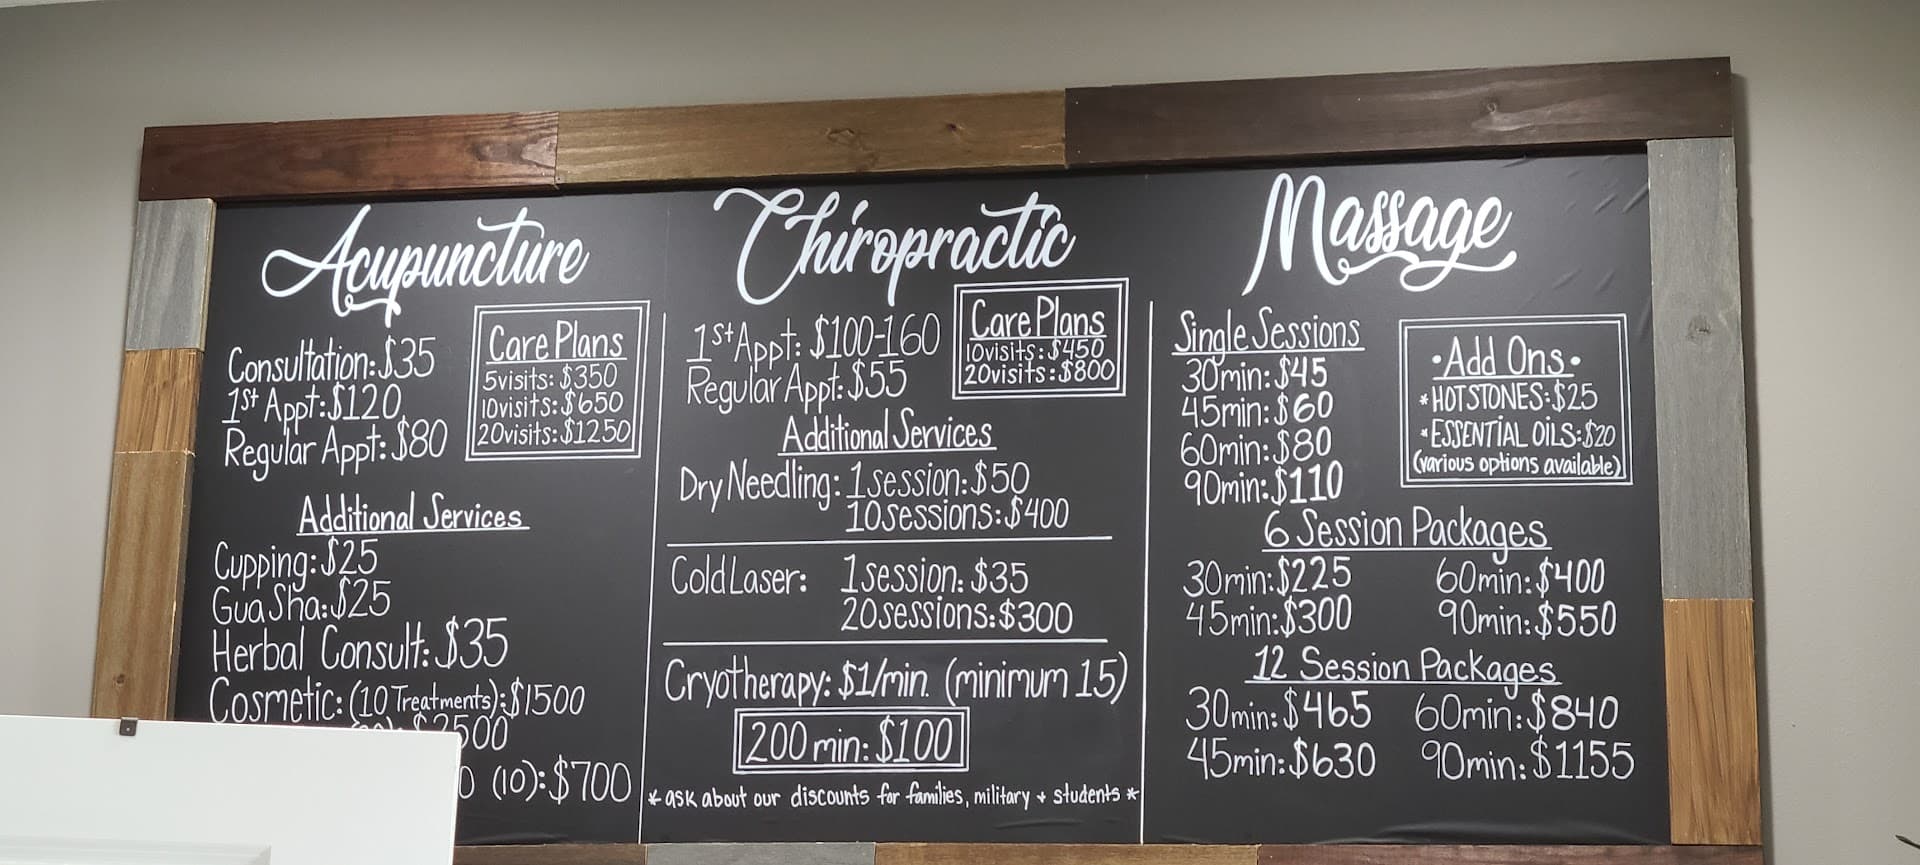 Acupuncture
Consultation: $35
1st Appt: $120
Regular Appt: $80
Care Plans
5 visits: $350
10 visits: $650
20 visits: $1250
Additional Services
Cupping: $25
Gua Sha: $25
Herbal Consult: $35
Cosmetic: (10 Treatments): $1500
$2500
(10): $700
Chiropractic
1st Appt: $100-160
Regular Appt: $55
Care Plans
10 visits: $450
20 visits: $800
Additional Services
Dry Needling: 1 session: $50
10 sessions: $400
Cold Laser: 1 session: $35
20 sessions: $300
Cryotherapy: $1/min. (minimum 15)
200 min: $100
* ask about our discounts for families, military + students *
Massage
Single Sessions
30 min: $45
45 min: $60
60 min: $80
90 min: $110
• Add Ons •
* HOT STONES: $25
* ESSENTIAL OILS: $20
(various options available)
6 Session Packages
30 min: $225 60 min: $400
45 min: $300 90 min: $550
12 Session Packages
30 min: $465 60 min: $840
45 min: $630 90 min: $1155